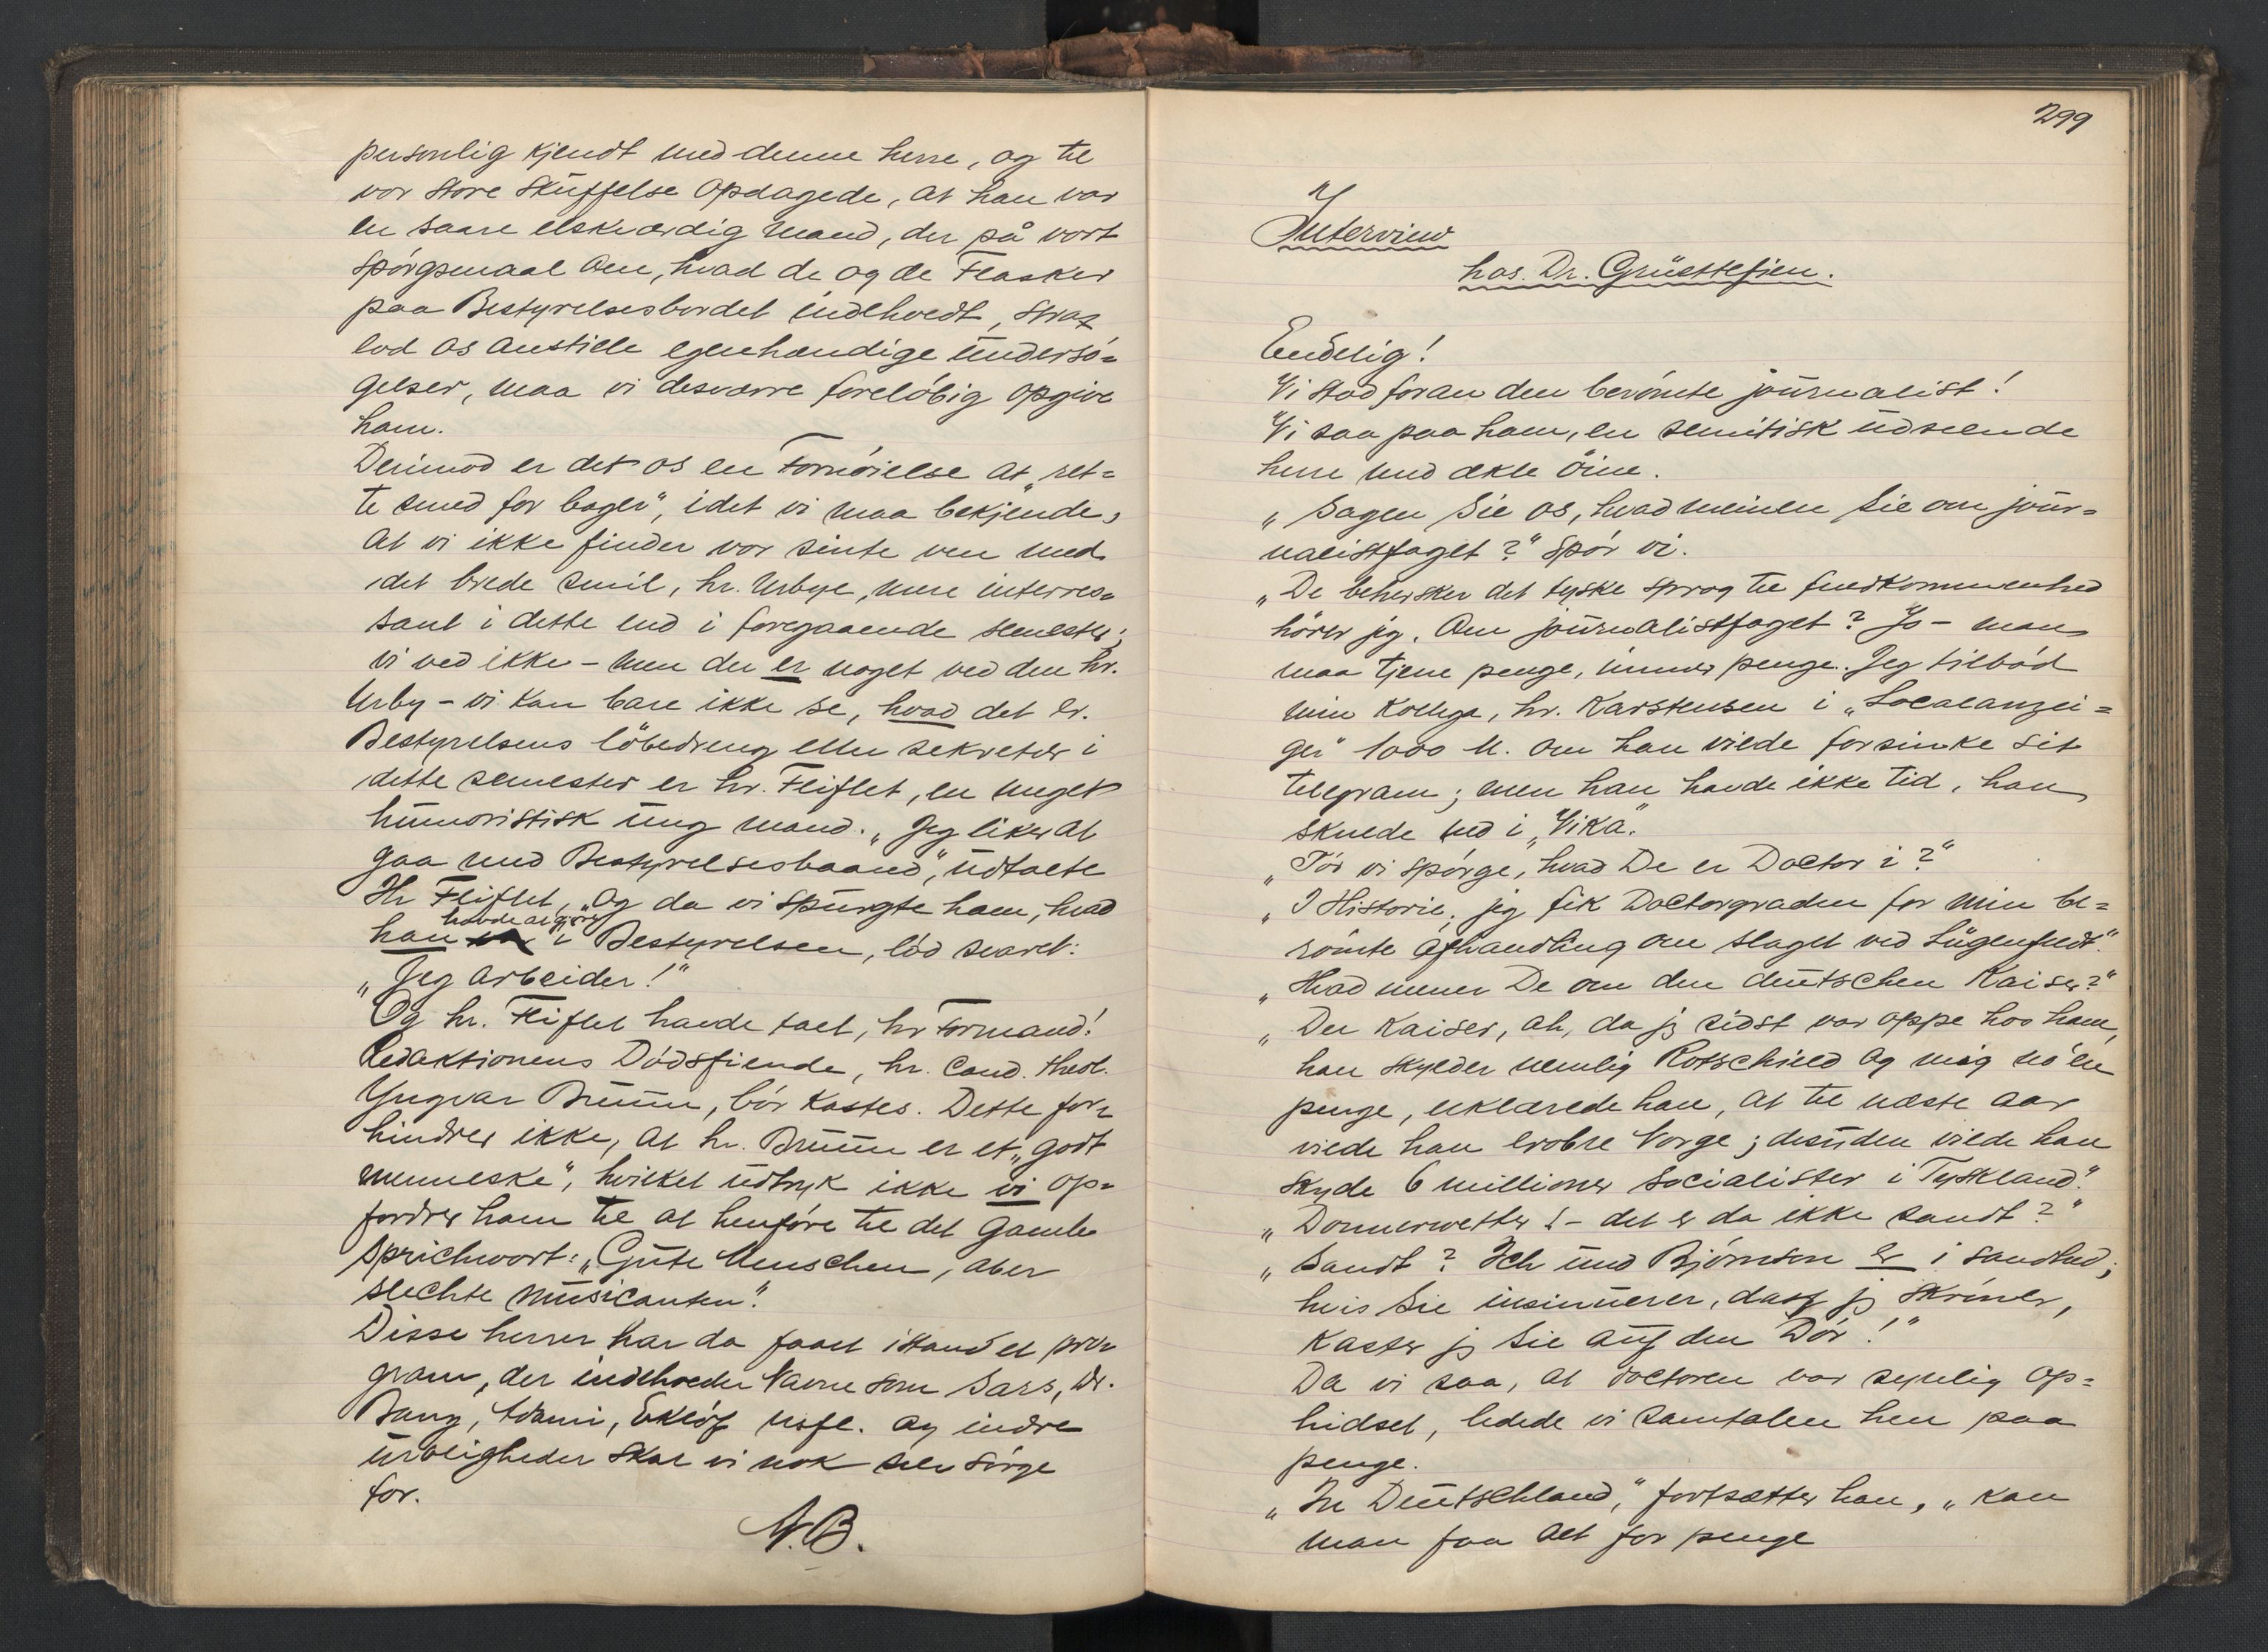 personlig kjendt med denne herre, og til
vor store skuffelse opdagede, at han var
en saare elskværdig mand, der på vort
spørgsmaal om, hvad de og de Flasker
paa Bestyrelsesbordet indehoedt, strax
lod os anstille egenhændige undersø=
gelser, maa vi desværre foreløbig opgive
ham.
Derimod er det os en Fornøielse at „ret=
te smed for bager", idet vi maa bekjende,
at vi ikke finder vor sidste ven med
det brede smil, hr. Urbye, mere interres=
sant i dette end i foregaaende semester;
vi ved ikke – men der er noget ved den hr.
Urby – vi kan bare ikke se, hvad det er.
Bestyrelsens løbedreng eller sekretær i
dette semester er hr. Fliflet, en meget
humoristisk ung mand. „Jeg liker at
gaa med Bestyrelsesbaand", udtalte
Hr Fliflet, og da vi spurgte ham, hvad
havde at gjøre
han i Bestyrelsen, lød svaret:
„Jeg arbeider!"
Og hr. Fliflet havde talt, hr Formand!
Redaktionens Dødsfiende, hr. Cand. theol.
Yngvar Bruun, bør kastes. Dette for=
hindrer ikke, at hr. Bruun er et „godt
menneske", hvilket udtryk ikke vi op=
fordrer ham til at henføre til det gamle
Sprichwort: „Gute Menschen, aber
slechte Musicanten".
Disse herrer har da faaet istand et pro=
gram, der indeholder Navne som Sars, Dr.
Bang, Adami, Ekløf usfl. og indre
uroligheder skal vi nok selv sørge
for.
N.B.
299
Interview
hos. Dr. Grüettefien.
Endelig!
Vi stod foran den berømte journalist!
Vi saa paa ham, en semitisk udseende
herre med ækle öine.
„Sagen Sie os, hvad meinen Sie om jour=
nalistfaget?" spør vi.
„De behersker det tyske sprog til fuldkommenhed
hører jeg. Om journalistfaget? Jo – man
maa tjene penge, immer penge. Jeg tilbød
min kollega, hr. Karstensen i „Localanzei=
ger" 1000 M. om han vilde forsinke sit
telegram; men han havde ikke tid, han
skulde ned i „Vika".
„Tør vi spørge, hvad De er Doctor i?"
„I Historie, jeg fik Doctorgraden for min be=
rømte afhandling om slaget ved Lügenfeldt."
„Hvad mener De om den deutschen Kaiser?"
„Der Kaiser, ah, da jg sidst var oppe hos ham,
han skylder nemlig Rotschild og mig no'en
penge, erklærede han, at til næste aar
vilde han erobre Norge; desuden vilde han
skyde 6 millioner socialister i Tyskland".
„Donnerwetter! – det er da ikke sandt?"
„Sandt? Ich und Bjørnson er i sandhed;
hvis Sie insinuerer, dasz jg skröner,
kaster jg Sie auf den Dør!"
Da vi saa, at doctoren var synlig op=
hidset, ledede vi samtalen hen paa
penge.
„In Deutschland," fortsætter han, „kan
man faa alt for penge